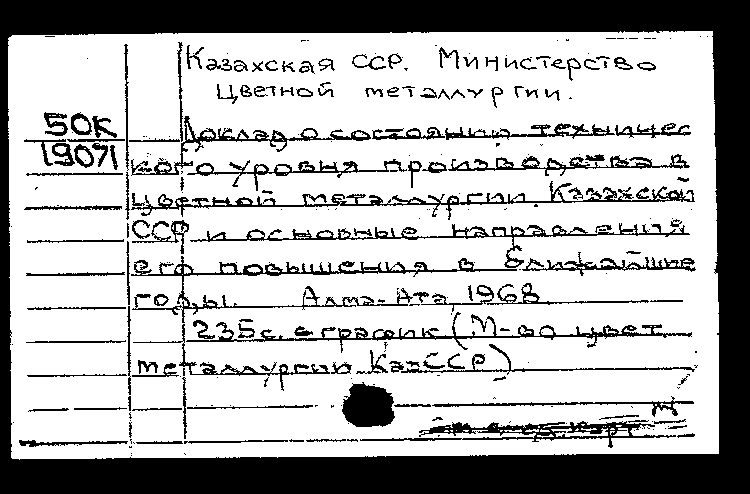 Казахская ССР. Министерство
Цветной металлургии.
50К
19071
Доклад о состоянии техничес
кого уровня производства в
цветной металлургии Казахской
ССР и основные направления
его повышения в ближайшие
годы. Алма-Ата, 1968.
235с. с график (М-во цвет
металлургии КазССР)